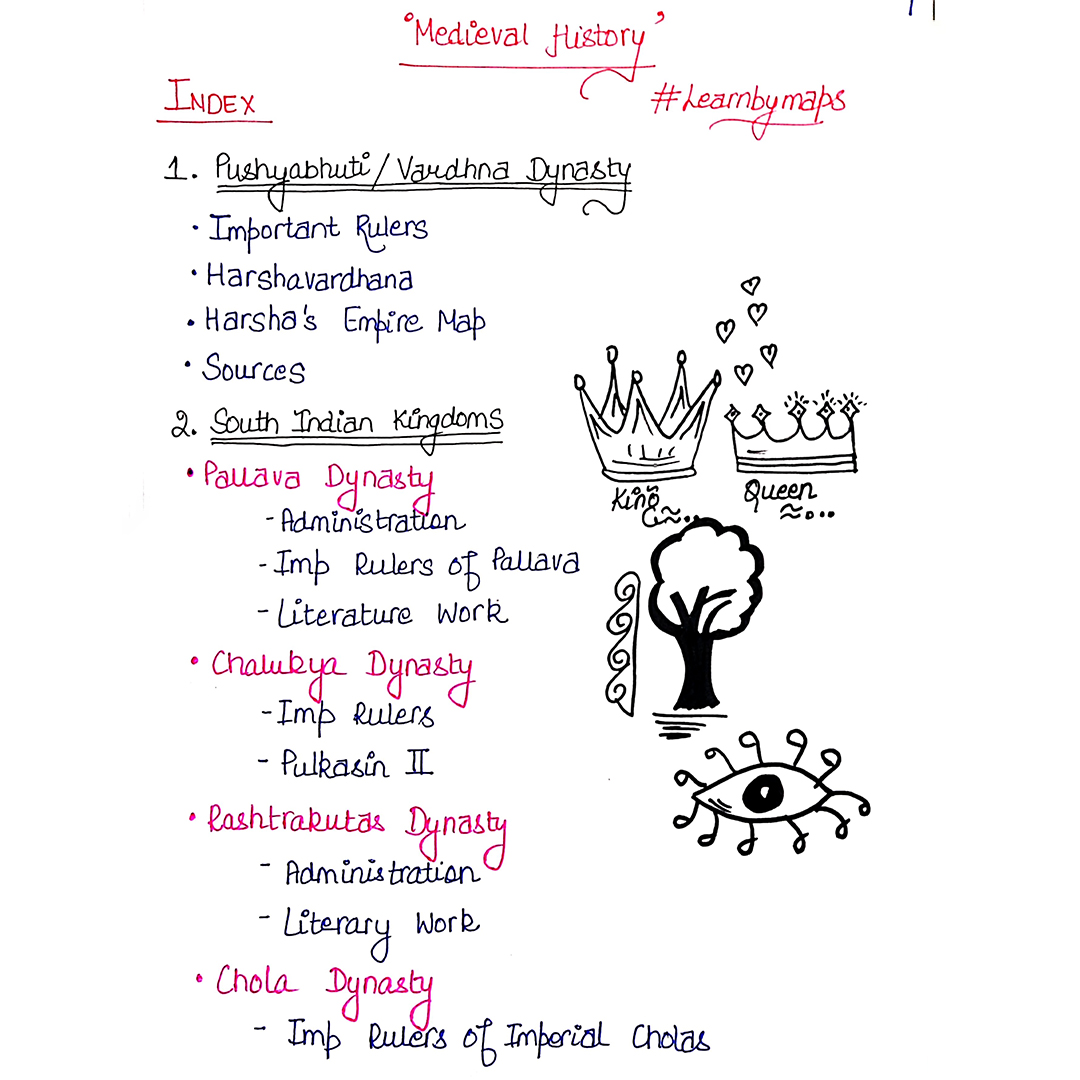 'Medieval History'
INDEX
#Learnbymaps
1. Pushyabhuti/Vardhna Dynasty
• Important Rulers
• Harshavardhana
• Harsha's Empire Map
• Sources
2. South Indian Kingdoms
• Pallava Dynasty
- Administration
- Imp Rulers of Pallava
- Literature Work
King
Queen
• Chalukya Dynasty
- Imp Rulers
- Pulkasin II
• Rashtrakutas Dynasty
- Administration
- Literary Work
• Chola Dynasty
- Imp Rulers of Imperial Cholas